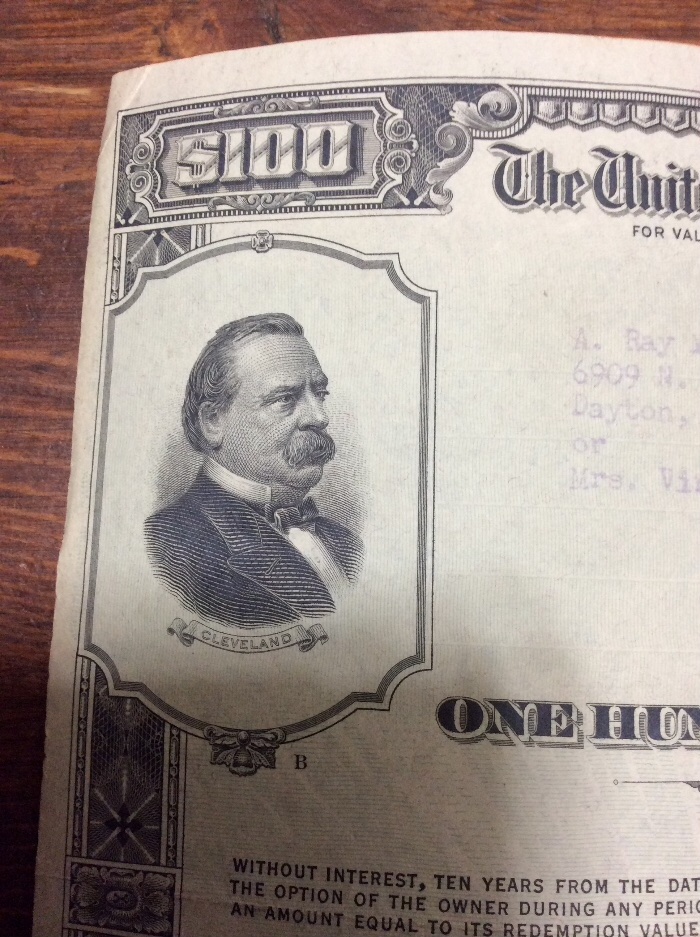 $100
The Unit
FOR VAL
A. Ray
6909 N.
Dayton,
or
Mrs. Vir
CLEVELAND
ONE HUN
B
WITHOUT INTEREST, TEN YEARS FROM THE DAT
THE OPTION OF THE OWNER DURING ANY PERIO
AN AMOUNT EQUAL TO ITS REDEMPTION VALUE